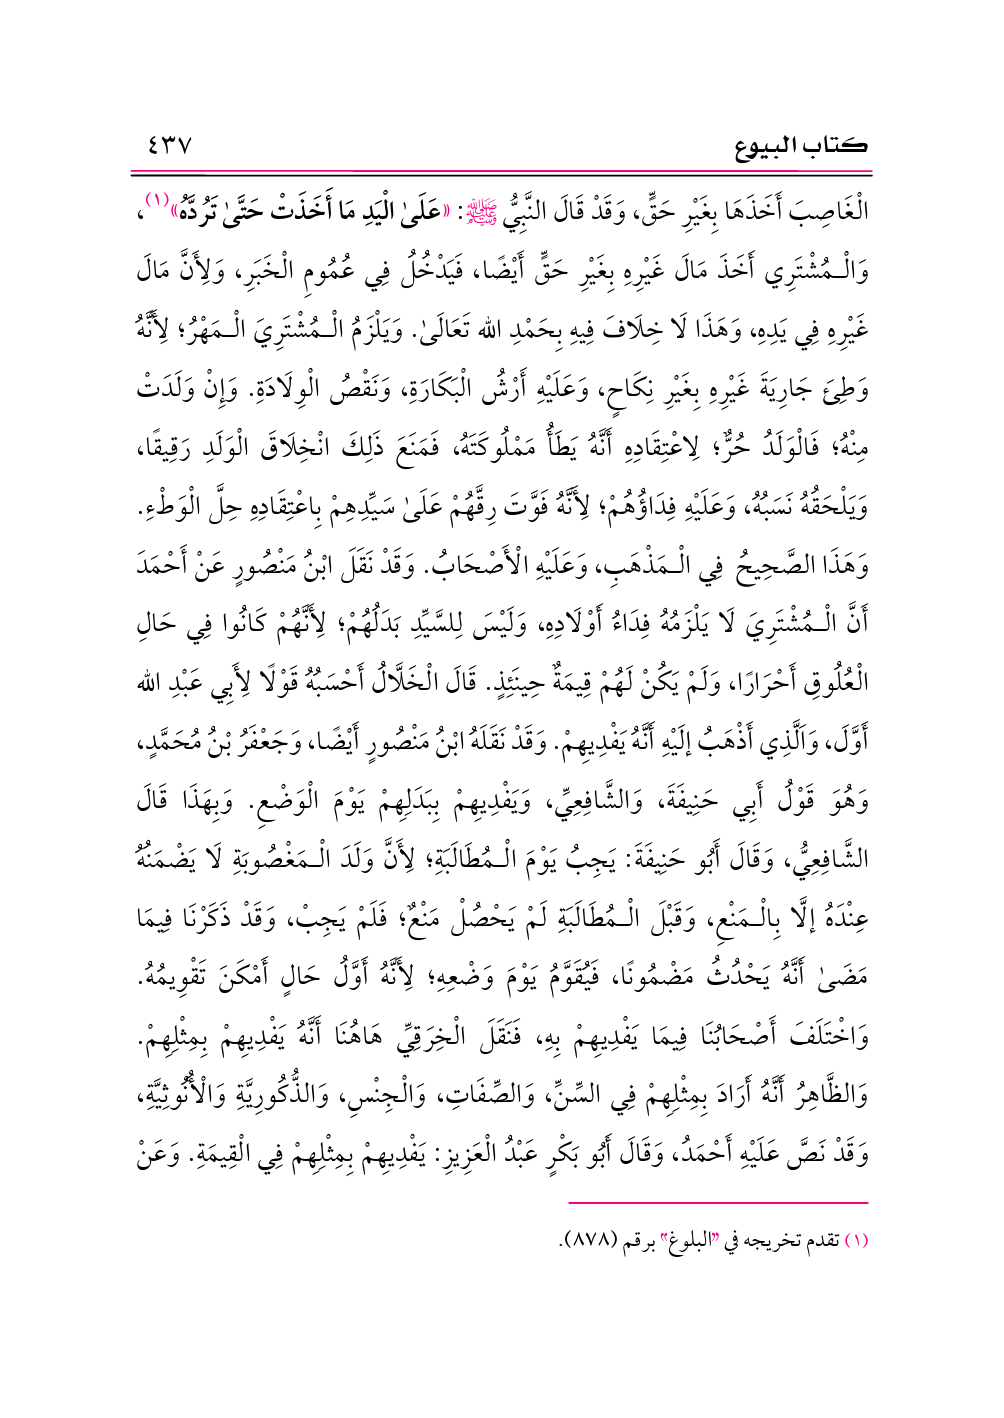 كتاب البيوع ٤٣٧
الْغَاصِبَ أَخَذَهَا بِغَيْرِ حَقٍّ، وَقَدْ قَالَ النَّبِيُّ ﷺ: «عَلَىٰ الْيَدِ مَا أَخَذَتْ حَتَّىٰ تَرُدَّهُ»(١)،
وَالْـمُشْتَرِي أَخَذَ مَالَ غَيْرِهِ بِغَيْرِ حَقٍّ أَيْضًا، فَيَدْخُلُ فِي عُمُومِ الْخَبَرِ، وَلِأَنَّ مَالَ
غَيْرِهِ فِي يَدِهِ، وَهَذَا لَا خِلَافَ فِيهِ بِحَمْدِ الله تَعَالَىٰ. وَيَلْزَمُ الْـمُشْتَرِيَ الْـمَهْرُ؛ لِأَنَّهُ
وَطِئَ جَارِيَةَ غَيْرِهِ بِغَيْرِ نِكَاحٍ، وَعَلَيْهِ أَرْشُ الْبَكَارَةِ، وَنَقْصُ الْوِلَادَةِ. وَإِنْ وَلَدَتْ
مِنْهُ؛ فَالْوَلَدُ حُرٌّ؛ لِاعْتِقَادِهِ أَنَّهُ يَطَأُ مَمْلُوكَتَهُ، فَمَنَعَ ذَلِكَ انْخِلَاقَ الْوَلَدِ رَقِيقًا،
وَيَلْحَقُهُ نَسَبُهُ، وَعَلَيْهِ فِدَاؤُهُمْ؛ لِأَنَّهُ فَوَّتَ رِقَّهُمْ عَلَىٰ سَيِّدِهِمْ بِاعْتِقَادِهِ حِلَّ الْوَطْءِ.
وَهَذَا الصَّحِيحُ فِي الْـمَذْهَبِ، وَعَلَيْهِ الْأَصْحَابُ. وَقَدْ نَقَلَ ابْنُ مَنْصُورٍ عَنْ أَحْمَدَ
أَنَّ الْـمُشْتَرِيَ لَا يَلْزَمُهُ فِدَاءُ أَوْلَادِهِ، وَلَيْسَ لِلسَّيِّدِ بَدَلُهُمْ؛ لِأَنَّهُمْ كَانُوا فِي حَالِ
الْعُلُوقِ أَحْرَارًا، وَلَمْ يَكُنْ لَهُمْ قِيمَةٌ حِينَئِذٍ. قَالَ الْخَلَّالُ أَحْسَبُهُ قَوْلًا لِأَبِي عَبْدِ الله
أَوَّلَ، وَاَلَّذِي أَذْهَبُ إلَيْهِ أَنَّهُ يَفْدِيهِمْ. وَقَدْ نَقَلَهُ ابْنُ مَنْصُورٍ أَيْضًا، وَجَعْفَرُ بْنُ مُحَمَّدٍ،
وَهُوَ قَوْلُ أَبِي حَنِيفَةَ، وَالشَّافِعِيِّ، وَيَفْدِيهِمْ بِبَدَلِهِمْ يَوْمَ الْوَضْعِ. وَبِهَذَا قَالَ
الشَّافِعِيُّ، وَقَالَ أَبُو حَنِيفَةَ: يَجِبُ يَوْمَ الْـمُطَالَبَةِ؛ لِأَنَّ وَلَدَ الْـمَغْصُوبَةِ لَا يَضْمَنُهُ
عِنْدَهُ إلَّا بِالْـمَنْعِ، وَقَبْلَ الْـمُطَالَبَةِ لَمْ يَحْصُلْ مَنْعٌ؛ فَلَمْ يَجِبْ، وَقَدْ ذَكَرْنَا فِيمَا
مَضَىٰ أَنَّهُ يَحْدُثُ مَضْمُونًا، فَيُقَوَّمُ يَوْمَ وَضْعِهِ؛ لِأَنَّهُ أَوَّلُ حَالٍ أَمْكَنَ تَقْوِيمُهُ.
وَاخْتَلَفَ أَصْحَابُنَا فِيمَا يَفْدِيهِمْ بِهِ، فَنَقَلَ الْخِرَقِيِّ هَاهُنَا أَنَّهُ يَفْدِيهِمْ بِمِثْلِهِمْ.
وَالظَّاهِرُ أَنَّهُ أَرَادَ بِمِثْلِهِمْ فِي السِّنِّ، وَالصِّفَاتِ، وَالْجِنْسِ، وَالذُّكُورِيَّةِ وَالْأُنُوثِيَّةِ،
وَقَدْ نَصَّ عَلَيْهِ أَحْمَدُ، وَقَالَ أَبُو بَكْرٍ عَبْدُ الْعَزِيزِ: يَفْدِيهِمْ بِمِثْلِهِمْ فِي الْقِيمَةِ. وَعَنْ
(١) تقدم تخريجه في "البلوغ" برقم (٨٧٨).